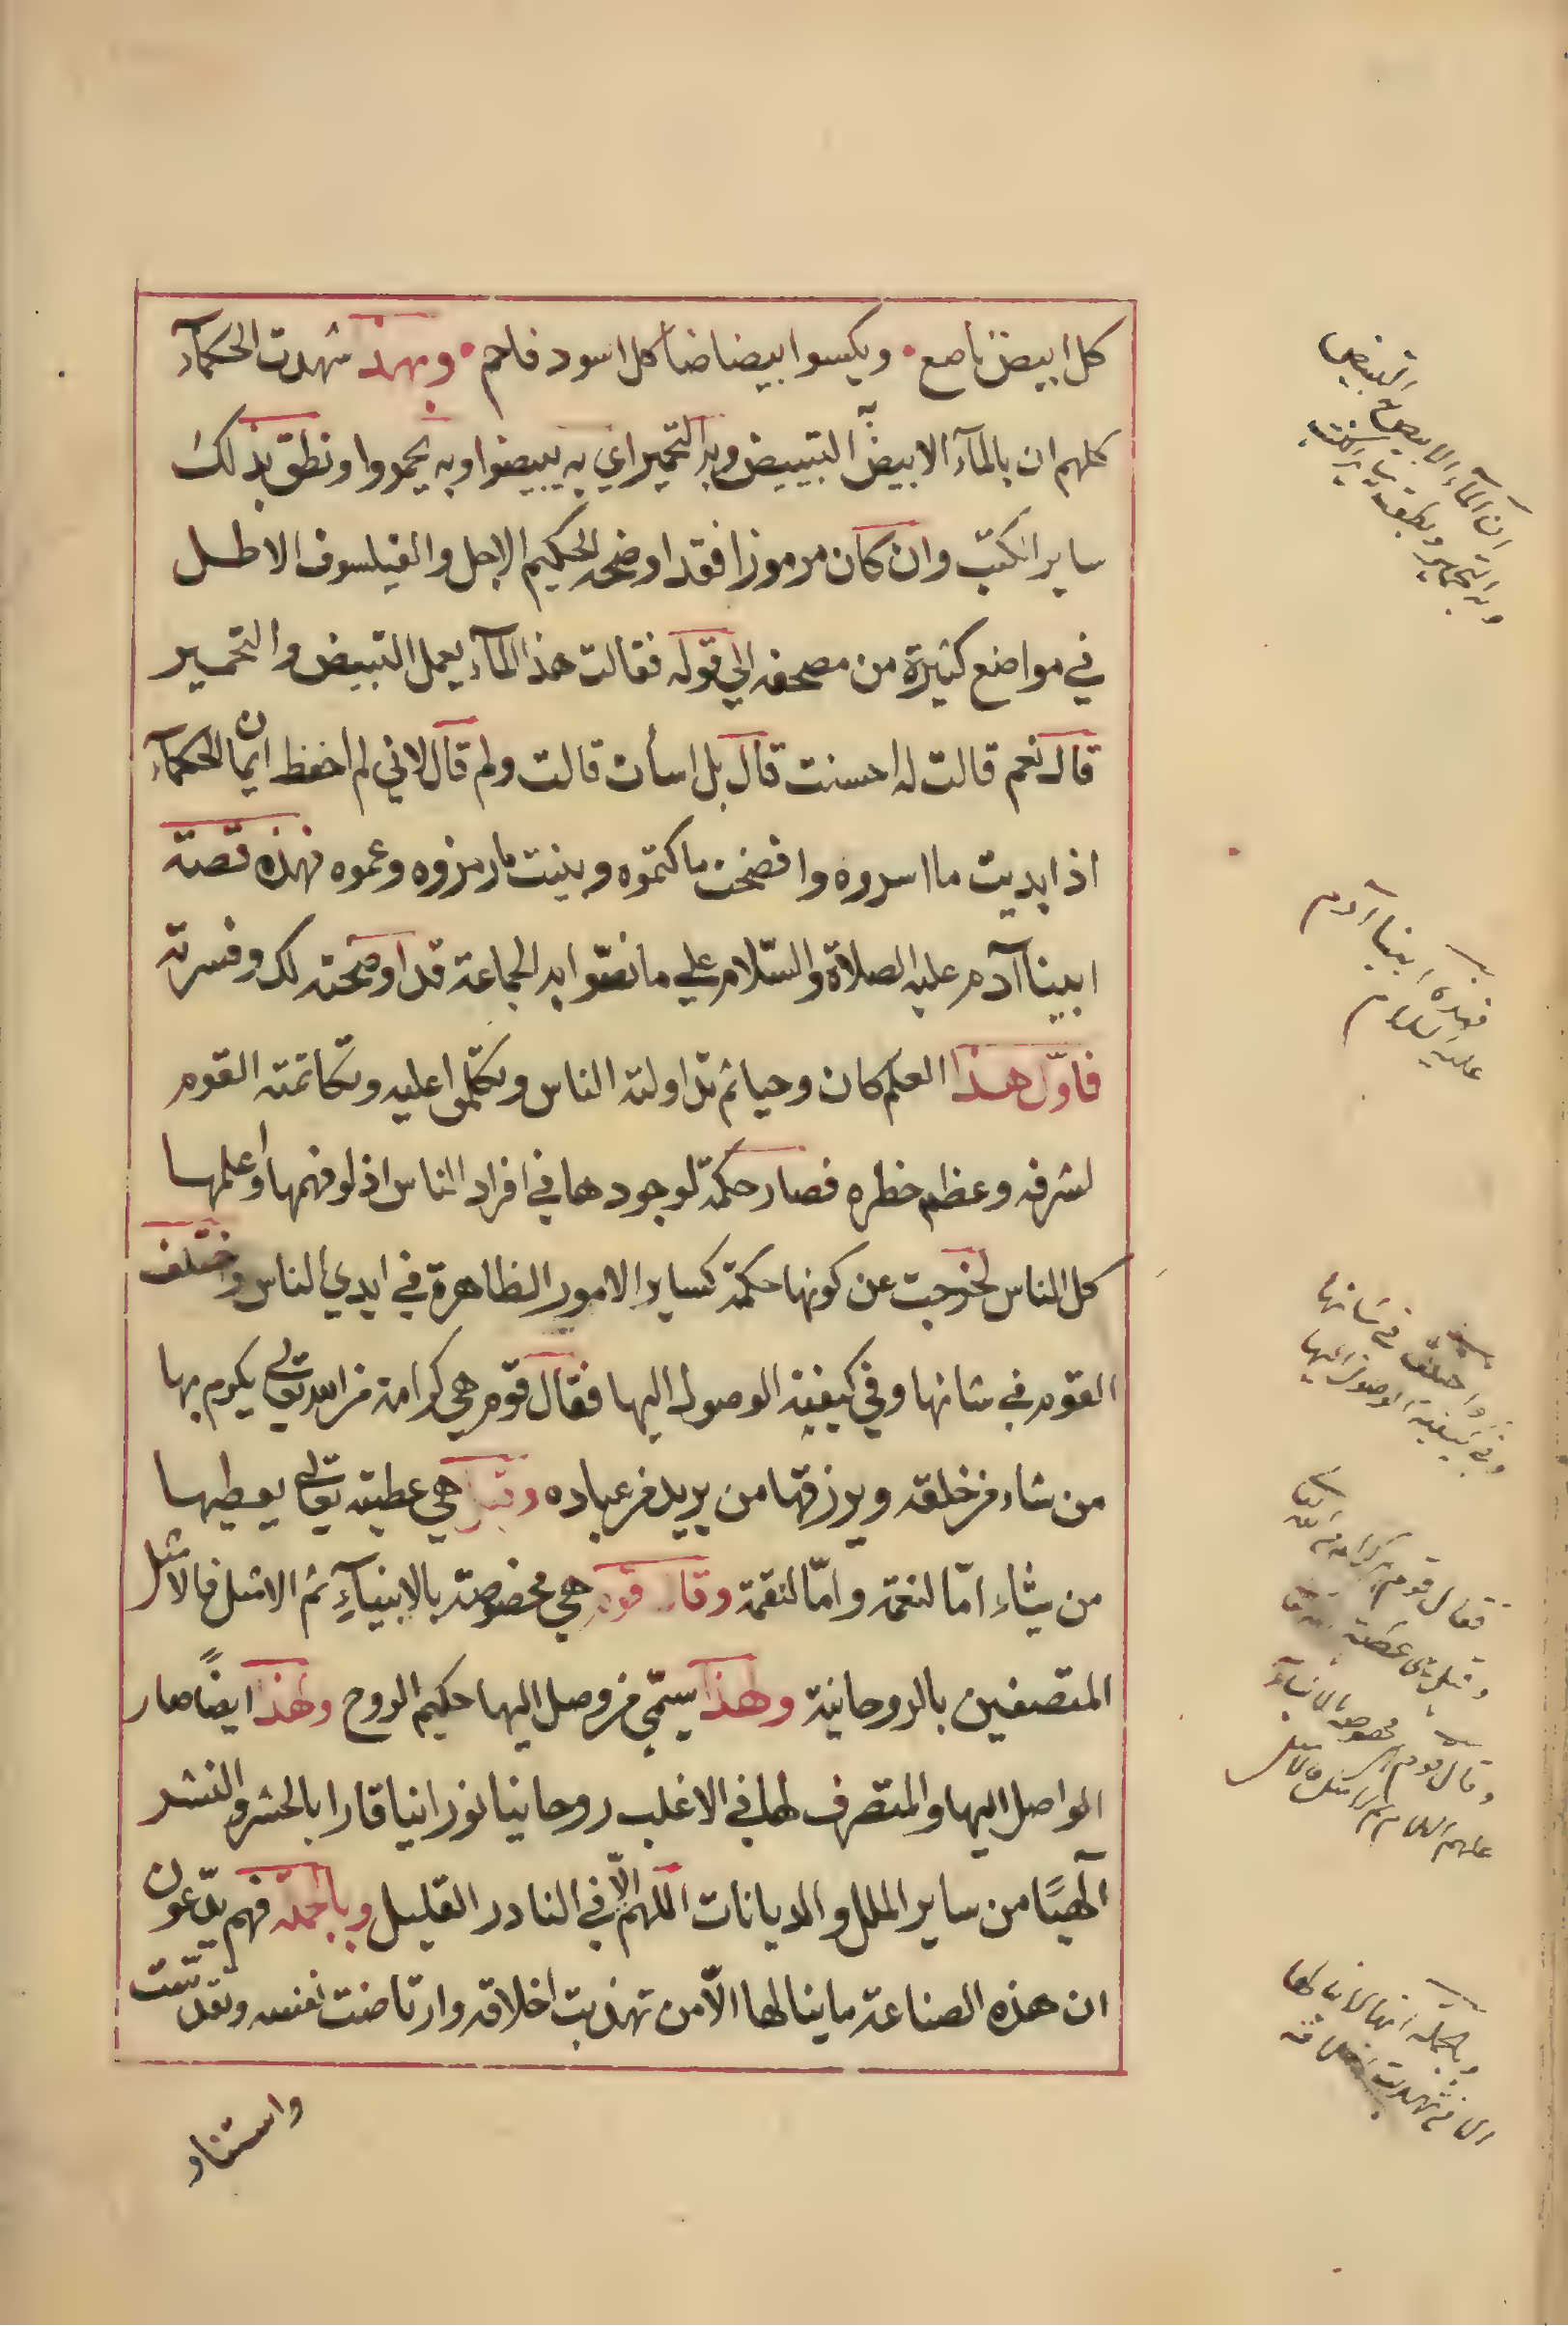 كل ابيض ناصع • ويكسوا بيضا ضا كل اسود فاحم • وبهذا شهدت الحكمآء
كلهم ان بالمآء الابيض التبييض وبه التحمير اي به يبيضوا وبه يحمروا ونطق بذلك
ساير الكتب وان كان مرموزا فقد اوضحه الحكيم الاجل والفيلسوف الاطل
في مواضع كثيرة من مصحفه الي قوله فقالت هذا المآء يعمل التبييض والتحمير
قال نعم قالت له احسنت قال بل اسأت قالت ولم قال لاني لم احفظ ايمان الحكمآء
اذ ابديت ما اسروه وافضحت ما كتموه وبينت ما رمزوه وعموه فهذه قصة
ابينا آدم عليه الصلاة والسّلام علي ما نصّوا به الجماعة قد اوضحته لك وفسرته
فاوّل هذا العلم كان وحيا ثم تداولته الناس وتكلّموا عليه وتكاتمته القوم
لشرفه وعظم خطره فصار حكمة لوجودها في افراد الناس اذ لو فهمها وعلمها
كل الناس لخرجت عن كونها حكمة كساير الامور الظاهرة في ايدي الناس واختلف
القوم في شانها وفي كيفية الوصول اليها فقال قوم هي كرامة من الله تعالي يكرم بها
من شاء من خلقه ويرزقها من يريد من عباده وقيل هي عطية تعالي يعطيها
من يشاء امّا لنعمة وامّا لنقمة وقال قوم هي مخصوصة بالانبيآء ثم الامثل فالامثل
المتصفين بالروحانية ولهذا يسمّي من وصل اليها حكيم الروح ولهذا ايضاً صار
الواصل اليها والمتصرف لها في الاغلب روحانيا نورانيا قارا بالحشر والنشر
آلهيًا من ساير الملل والديانات اللهم الّا في النادر القليل وبالجملة فهم يدّعون
ان هذه الصناعة ما ينالها الّا من تهذبت اخلاقه وارتاضت نفسه وتقدّست
واستنار
ان المآء الابيض به التبيض
وبه التحمير ونطقت ساير الكتب
فهذه ابينا آدم
عليه السلام
واختلف في شانها
وفي كيفية الوصول اليها
فقال قوم هي كرامة من الله
وقيل هي عطية
وقال قوم هي مخصوصة بالانبيآء
عليهم السلام ثم الامثل فالامثل
وبالجملة انها لا ينالها
الا من تهذبت اخلاقه